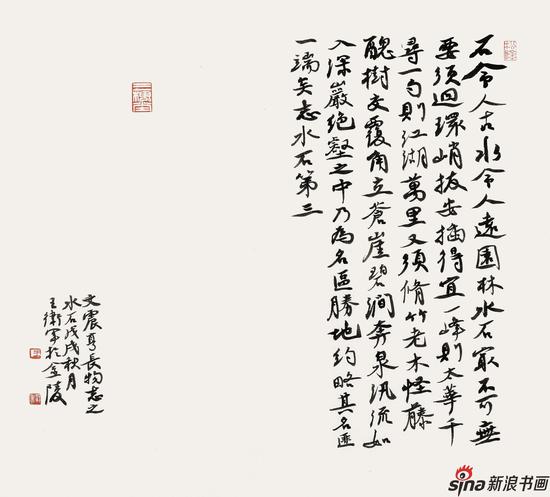 石令人古水令人遠園林水石㝡不可無
要須迴環峭拔安插得宜一峰則太華千
尋一勺則江湖萬里又須脩竹老木怪藤
醜樹交覆角立蒼崖碧澗奔泉汛流如
入深巖絕壑之中乃為名區勝地約略其名匪
一端矣志水石第三
文震亨長物志之
水石戊戌秋月
王衛軍於金陵
sina新浪书画